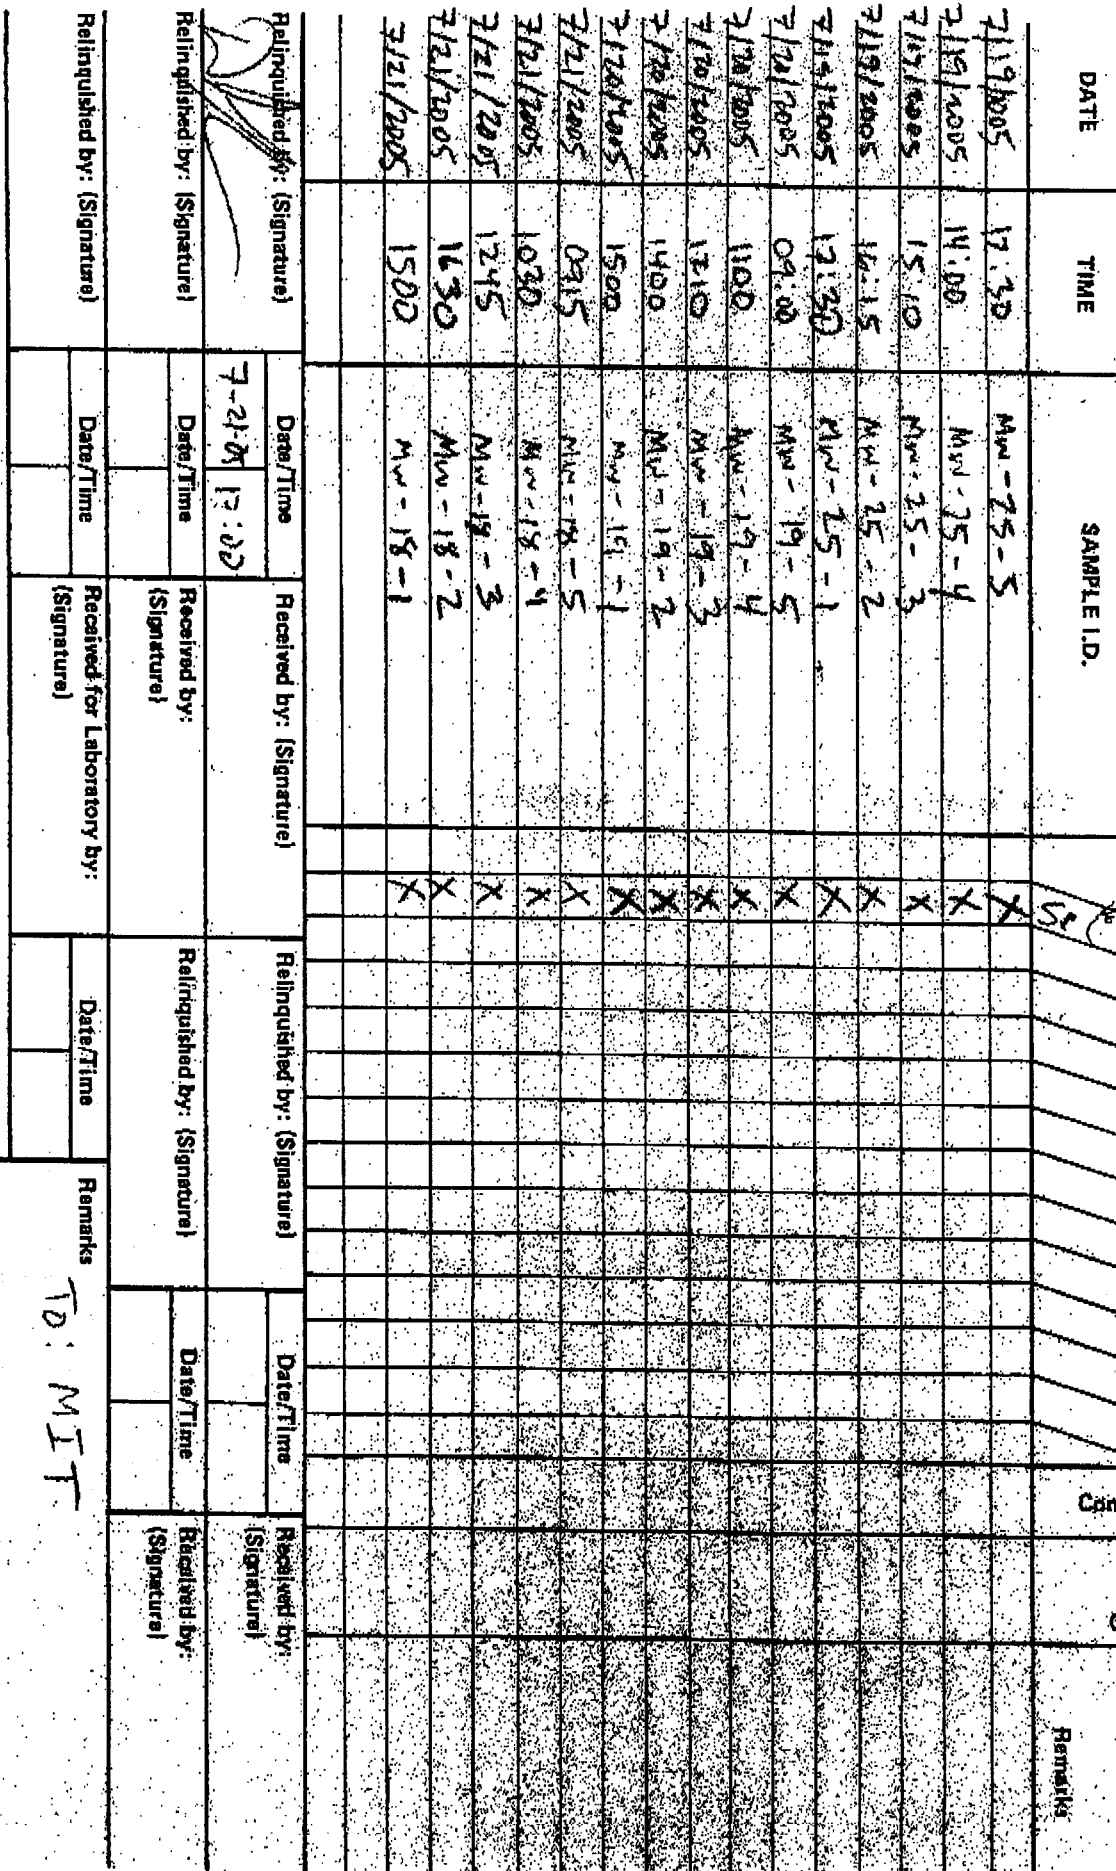 DATE TIME SAMPLE I.D. Remarks
7/19/2005 17:30 MW-25-5 X
7/19/2005 14:00 MW-25-4 X
7/19/2005 15:10 MW-25-3 X
7/19/2005 16:15 MW-25-2 X
7/19/2005 17:30 MW-25-1 X
7/20/2005 09:00 MW-19-5 X
7/20/2005 1100 MW-19-4 X
7/20/2005 1210 MW-19-3 X
7/20/2005 1400 MW-19-2 X
7/20/2005 1500 MW-19-1 X
7/21/2005 0915 MW-18-5 X
7/21/2005 1030 MW-18-4 X
7/21/2005 1245 MW-18-3 X
7/21/2005 1630 MW-18-2 X
7/21/2005 1500 MW-18-1 X
Relinquished by: (Signature) Date/Time Received by: (Signature) Relinquished by: (Signature) Date/Time Received by: (Signature)
7-21-05 17:00
Relinquished by: (Signature) Date/Time Received by: (Signature) Relinquished by: (Signature) Date/Time Received by: (Signature)
Relinquished by: (Signature) Date/Time Received for Laboratory by: (Signature) Date/Time Remarks
TO: MIT